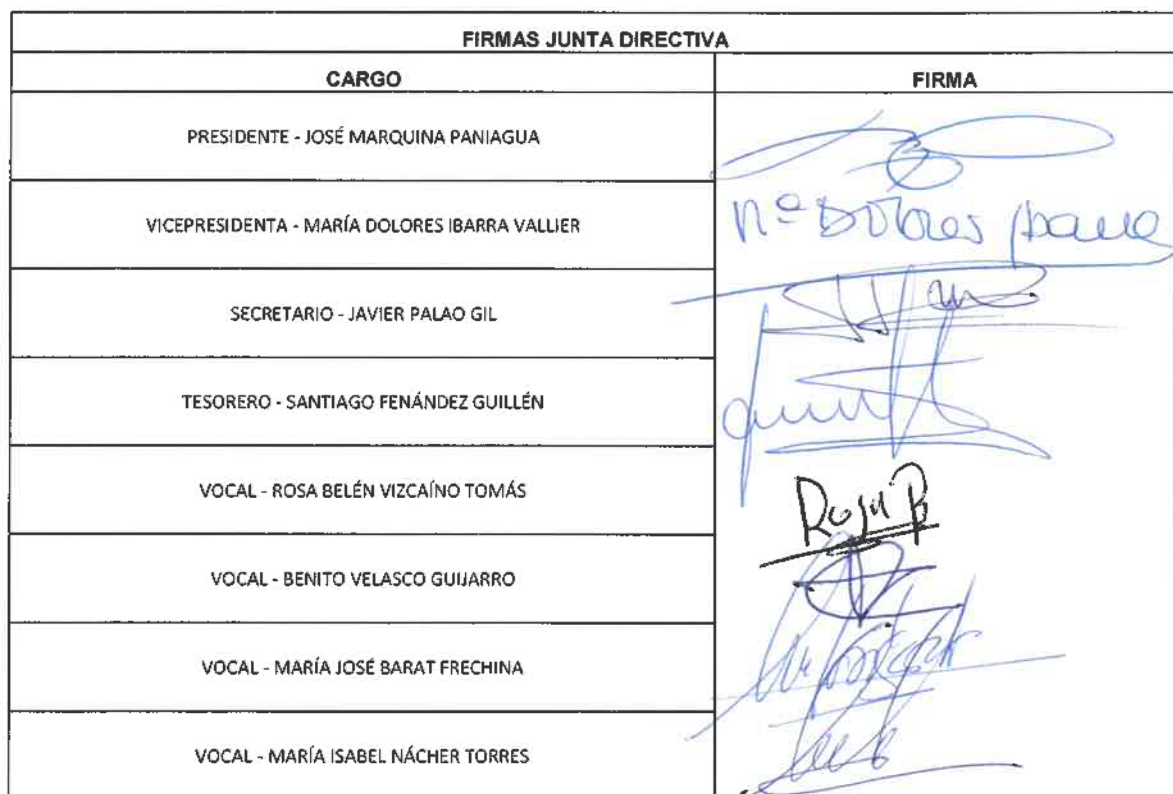 FIRMAS JUNTA DIRECTIVA
CARGO FIRMA
PRESIDENTE - JOSÉ MARQUINA PANIAGUA
VICEPRESIDENTA - MARÍA DOLORES IBARRA VALLIER
Mª Dolores Ibarra
SECRETARIO - JAVIER PALAO GIL
TESORERO - SANTIAGO FENÁNDEZ GUILLÉN
VOCAL - ROSA BELÉN VIZCAÍNO TOMÁS
Rosa B
VOCAL - BENITO VELASCO GUIJARRO
VOCAL - MARÍA JOSÉ BARAT FRECHINA
VOCAL - MARÍA ISABEL NÁCHER TORRES